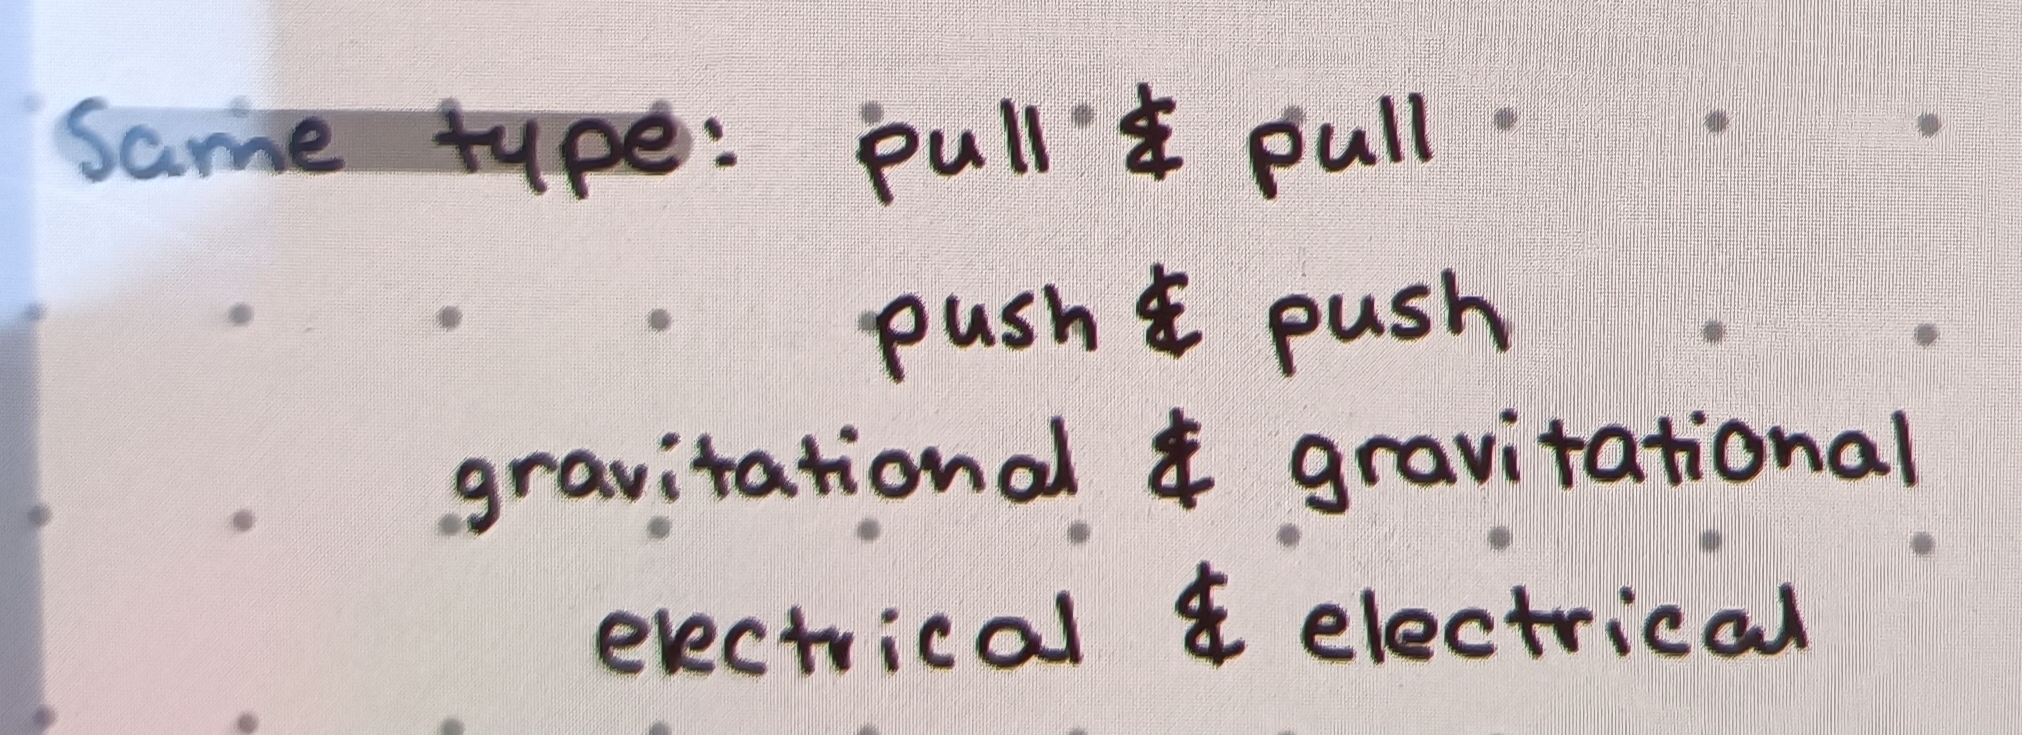 Same type: pull & pull
push & push
gravitational & gravitational
electrical & electrical